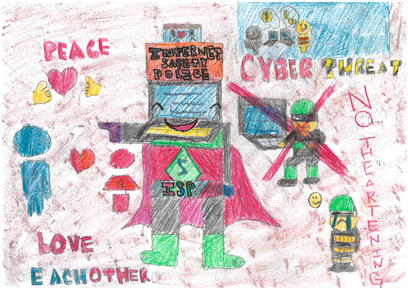 PEACE
INTERNET
SAFETY
POLICE
CYBER THREAT
NO THEARTENING
ISP
LOVE
EACHOTHER